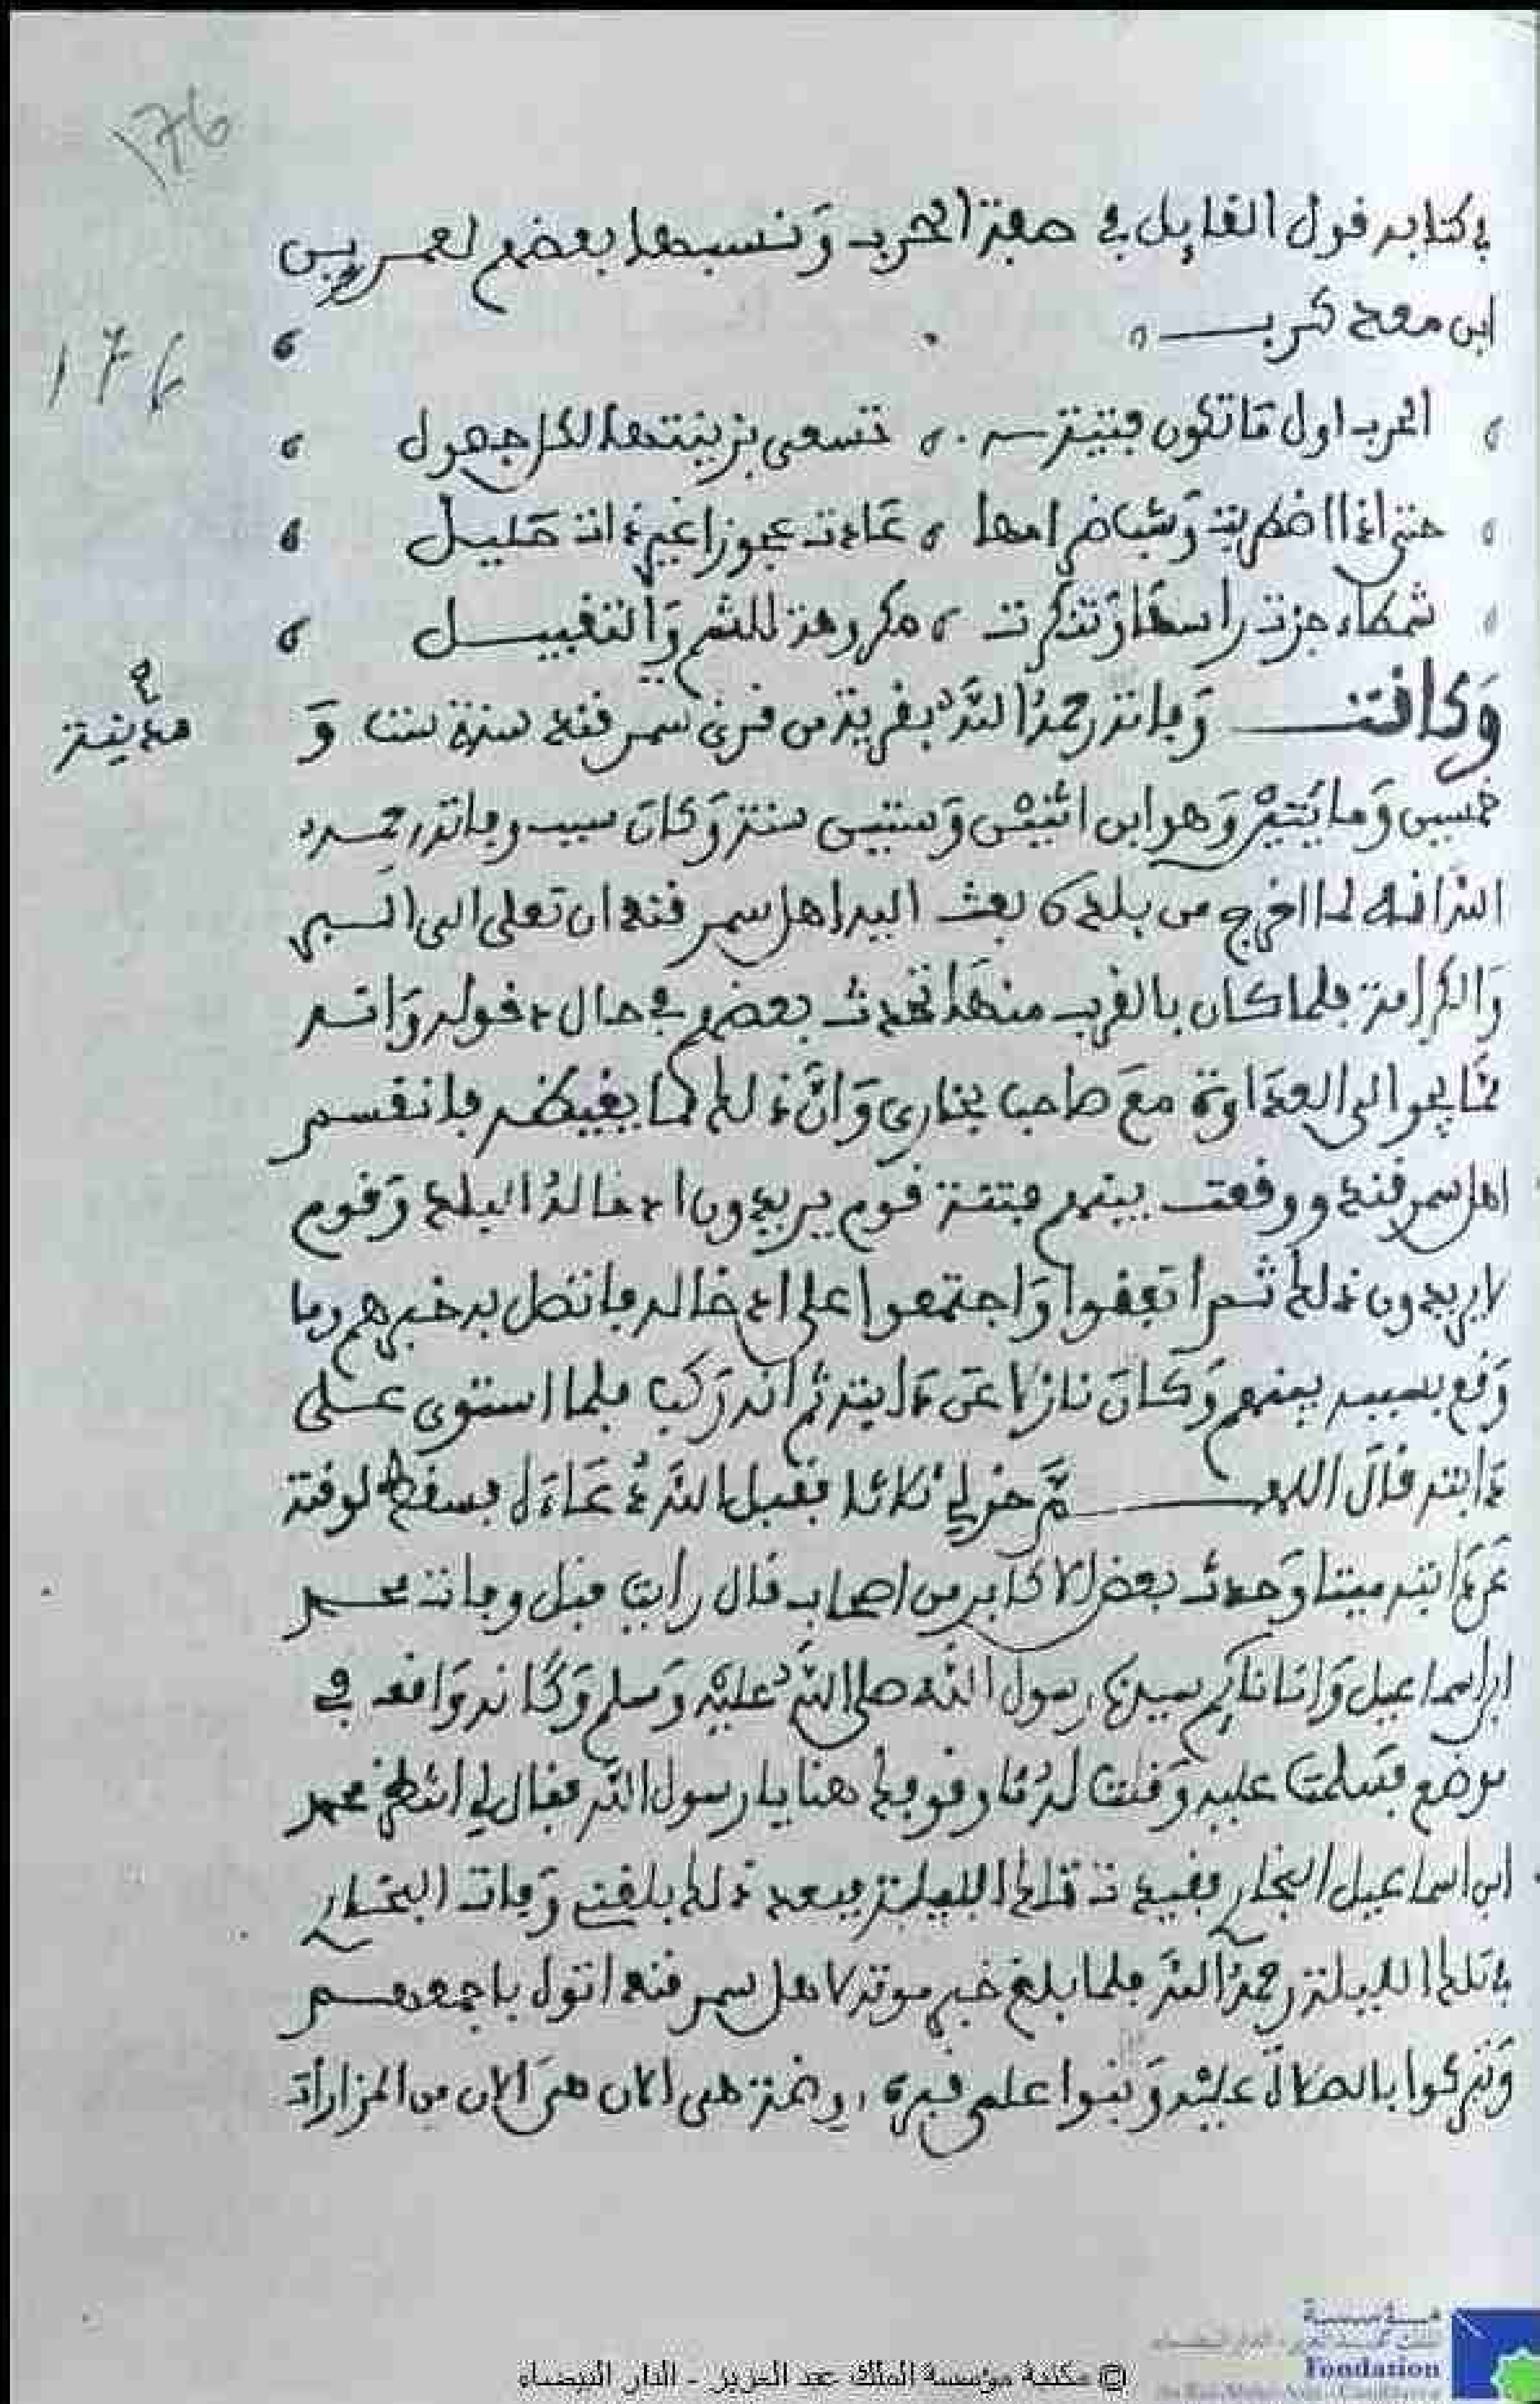 176
في كتابه قول القايل في صفة الحرب وَنسبها بعضهم لعمر بن
176
ابن معد كرب
الحرب اول مَا تكون فتية تسعى بزينتها لكل جهول
حتى اذا اضطرمت وَشب ضرامها عَادت عجوزا غير ذات حَليل
شمطاء جزت راسهَا وَتنكرت مكروهة للشم وَالتقبيل
وَكانت وَفاته رحمهُ اللهُ بقرية من قرى سمرقند سنة ست وَ
مدينة
خمسين وَمايتيْن وَهو ابن اثنيْن وَستين سنة وَكانَ سبب وفاته رحمه
الله انه لما اخرج من بلده بعث اليه اهل سمرقند ان تعلى الى السير
وَالكرامة فلما كان بالقرب منهَا تحدث بعضهم في حال دخوله وَانهم
يخَافوا الى العدَاوة معَ صاحب بخارى وَانَّ ذلك مما يغيظه فانقسم
اهل سمرقند ووقعت بينهم فتنة قوم يريدون ادخالهُ البلد وَقوم
لا يريدون ذلك ثم اتفقوا وَاجتمعوا على ادخاله فاتصل به خبرهم وما
وَقع بسببه بينهم وَكَانَ نازلا عَن دَابته ثم انه رَكب فلما استوى على
دَابته قالَ اللهم خر لي ثلاثا فقبل اللهُ دعَاءه فسقط لوقته
عن دَابته ميتا وَحدث بعض الاكابر من اصحابه قال رايت قبل وفاة محمد
ابن اسماعيل وَانَا نايم سيدي رسول الله صلى اللهُ عليْه وَسلم وَكَانه وَاقف في
موضع فسَلمت عليه وَقلت لهُ مَا وقوفك هنا يا رسول الله فقال لي انتظر محمد
ابن اسماعيل البخاري فقيدت تلك الليلة فبعد ذلك بلغني وَفات البخاري
في تلك الليلة رحمهُ الله فلما بلغ خبر موته لاهل سمرقند اتوا باجمعهم
وَتبركوا بالصلاة عليْه وَبنوا على قبره روضة هى الان هىَ الان من المزارات
مؤسسة
Fondation
© مكتبة مؤسسة الملك عبد العزيز - الدار البيضاء